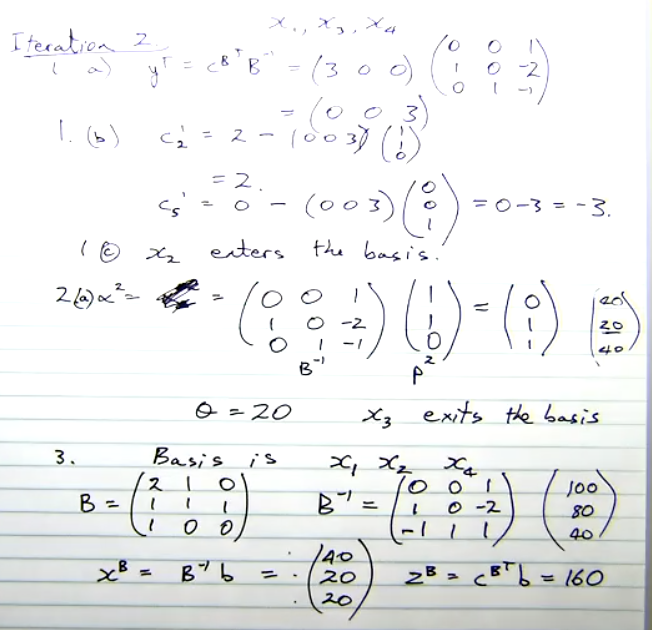 x₁, x₃, x₄
Iteration 2.
1 a) yᵀ = c^Bᵀ B⁻¹ = (3 0 0) (0 0 1; 1 0 -2; 0 1 -1)
= (0 0 3)
1. (b) c₂' = 2 - (0 0 3) (1; 1; 0)
= 2.
c₅' = 0 - (0 0 3) (0; 0; 1) = 0-3 = -3.
1 (c) x₂ enters the basis.
2(a) α² = = (0 0 1; 1 0 -2; 0 1 -1) (1; 1; 0) = (0; 1; 1) (20; 20; 40)
B⁻¹ P²
θ = 20 x₃ exits the basis
3. Basis is x₁ x₂ x₄
B = (2 1 0; 1 1 1; 1 0 0) B⁻¹ = (0 0 1; 1 0 -2; -1 1 1) (100; 80; 40)
x^B = B⁻¹ b = (40; 20; 20) z^B = c^Bᵀ b = 160